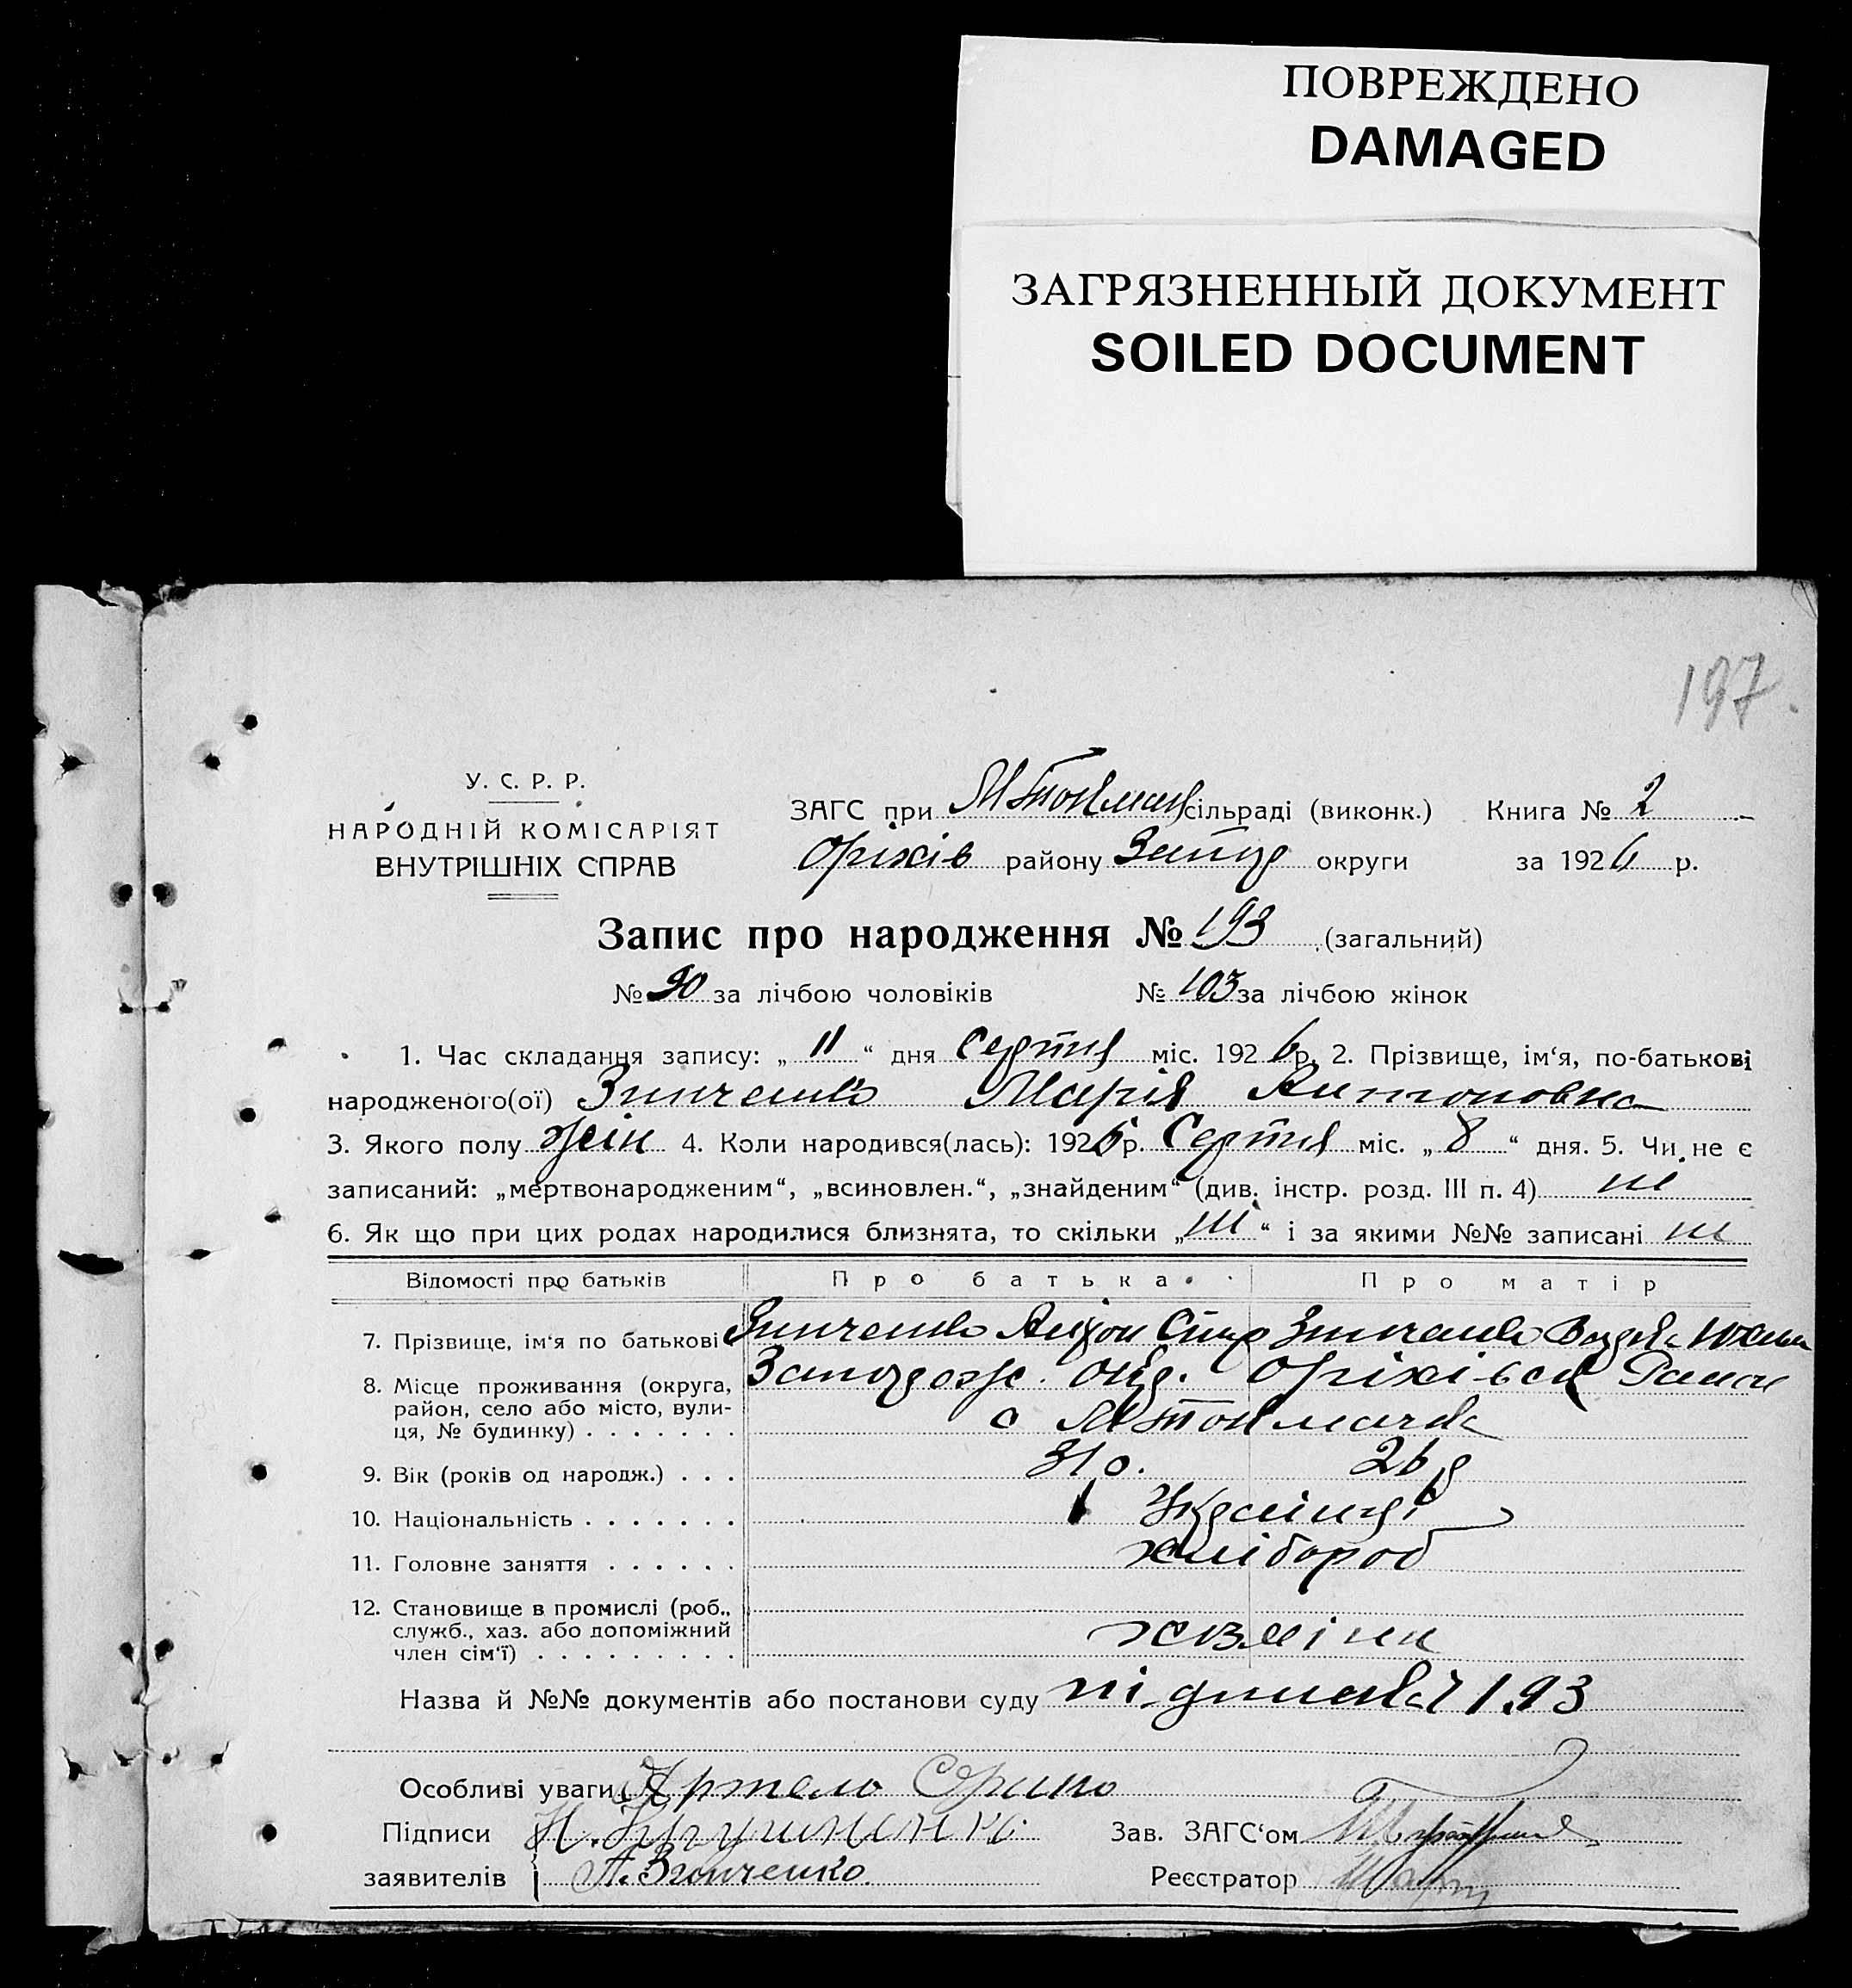 ПОВРЕЖДЕНО
DAMAGED
ЗАГРЯЗНЕННЫЙ ДОКУМЕНТ
SOILED DOCUMENT
197.
У. С. Р. Р.
НАРОДНІЙ КОМІСАРІЯТ
ВНУТРІШНІХ СПРАВ
ЗАГС при сільраді (виконк.) Книга № 2
Оріхів району Запор округи за 1926 р.
Запис про народження № 193 (загальний)
№ 90 за лічбою чоловіків № 103 за лічбою жінок
1. Час складання запису: „ 11 “ дня Серпня міс. 1926 р. 2. Прізвище, ім‘я, по-батькові
народженого(ої) Зинченко Марія Антоновна
3. Якого полу жін 4. Коли народився(лась): 1926 р. Серпня міс. „ 8 “ дня. 5. Чи не є
записаний: „мертвонародженим“, „всиновлен.“, „знайденим“ (див. інстр. розд. III п. 4) ні
6. Як що при цих родах народилися близнята, то скільки „ ні “ і за якими №№ записані ні
Відомості про батьків Про батька Про матір
7. Прізвище, ім‘я по батькові Зинченко Антон Зинченко
8. Місце проживання (округа, Запорож. окр. Оріхівськ
район, село або місто, вули-
ця, № будинку) . . . . . . . с М Токмачка
9. Вік (років од народж.) . . . 31 р. 26 р
10. Національність . . . . . . . Українці
11. Головне заняття . . . . . . хлібороб
12. Становище в промислі (роб.,
служб., хаз. або допоміжний
член сім‘ї) . . . . . . . . . хазяіни
Назва й №№ документів або постанови суду 193
Особливі уваги
Підписи
заявителів А. Зинченко
Зав. ЗАГС‘ом
Реєстратор